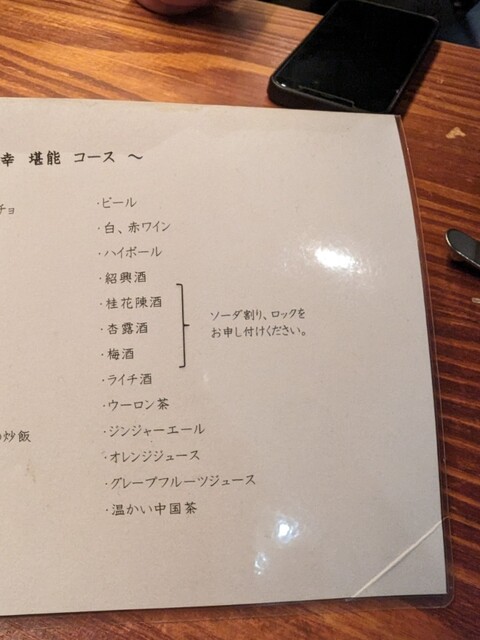 幸 堪能 コース ～
チョ
・ビール
・白、赤ワイン
・ハイボール
・紹興酒
・桂花陳酒
・杏露酒
・梅酒
・ライチ酒
ソーダ割り、ロックを
お申し付けください。
・ウーロン茶
・ジンジャーエール
の炒飯
・オレンジジュース
・グレープフルーツジュース
・温かい中国茶